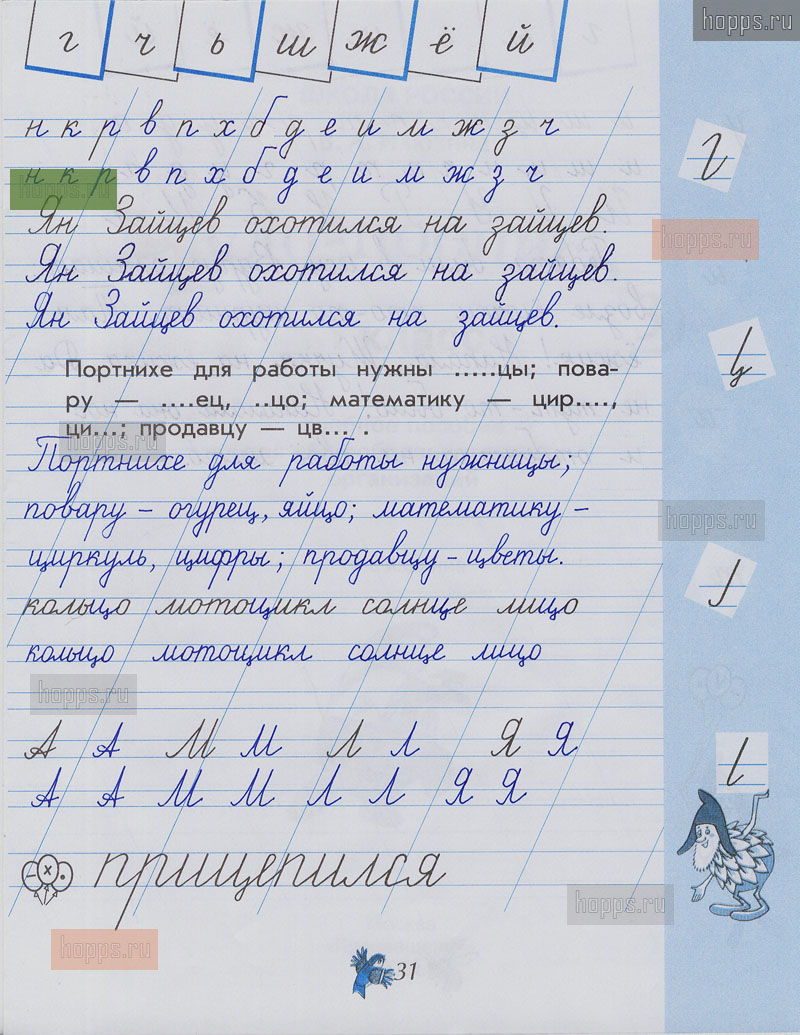 hopps.ru
г ч ь ш ж ё й
н к р в п х б д е и м ж з ч
н к р в п х б д е и м ж з ч
hopps.ru
Ян Зайцев охотился на зайцев.
hopps.ru
Ян Зайцев охотился на зайцев.
Ян Зайцев охотился на зайцев.
Портнихе для работы нужны .....цы; пова-
ру — ....ец, ..цо; математику — цир....,
ци...; продавцу — цв... .
hopps.ru
Портнихе для работы нужницы;
повару – огурец, яйцо; математику –
hopps.ru
циркуль, цифры; продавцу – цветы.
кольцо мотоцикл солнце лицо
кольцо мотоцикл солнце лицо
hopps.ru
А А М М Л Л Я Я
А А М М Л Л Я Я
прищепился
hopps.ru
hopps.ru
31